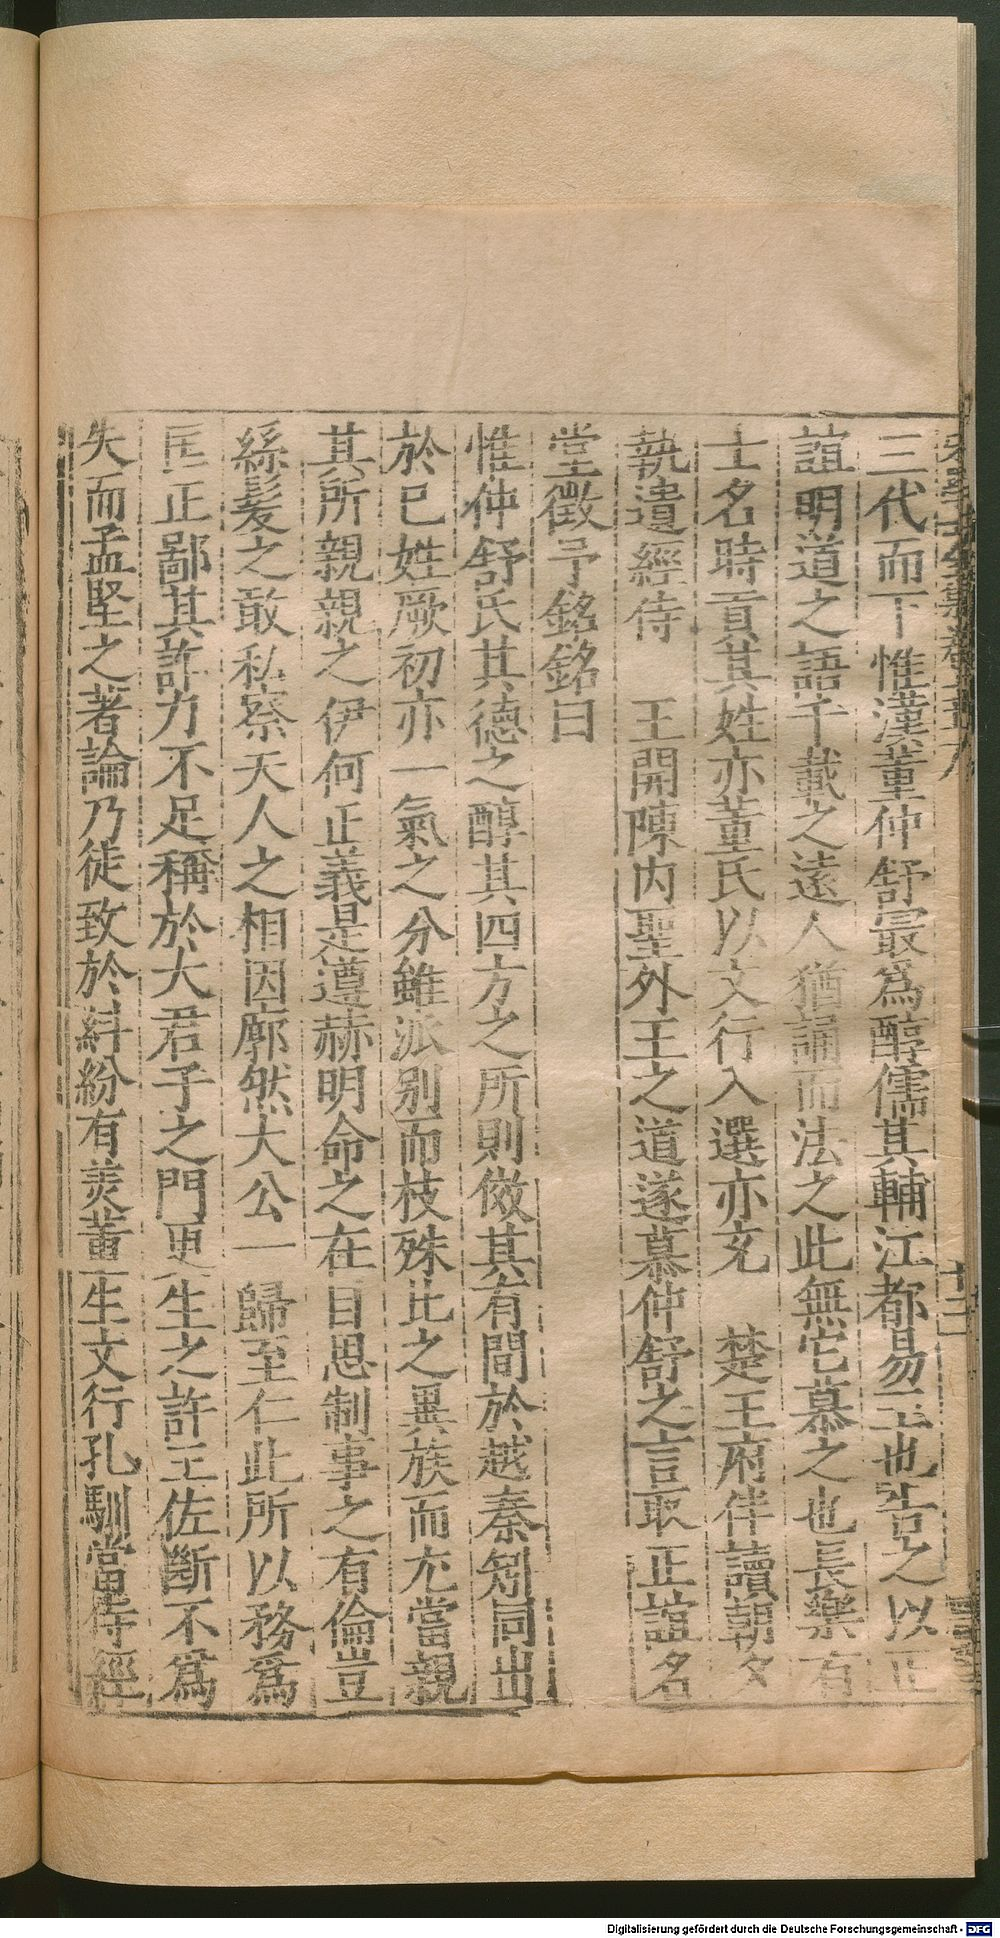 三代而下惟漢董仲舒最爲醇儒其輔江都易王也告之以正
誼明道之語千載之遠人猶誦而法之此無它慕之也長樂有
士名時貢其姓亦董氏以文行入選亦充　楚王府伴讀朝夕
執遺經侍　王開陳内聖外王之道遂慕仲舒之言取正誼名
堂徵予銘銘曰
惟仲舒氏其德之醇其四方之所則傚其有間於越秦矧同出
於已姓厥初亦一氣之分雖派别而枝殊比之異族而尤當親
其所親親之伊何正義是遵赫明命之在目思制事之有倫豈
絲髮之敢私察天人之相因廓然大公一歸至仁此所以務爲
匡正鄙其詐力不足稱於大君子之門更生之許王佐斷不爲
失而孟堅之著論乃徒致於糾紛有羨董生文行孔馴當侍經
十二
Digitalisierung gefördert durch die Deutsche Forschungsgemeinschaft - DFG